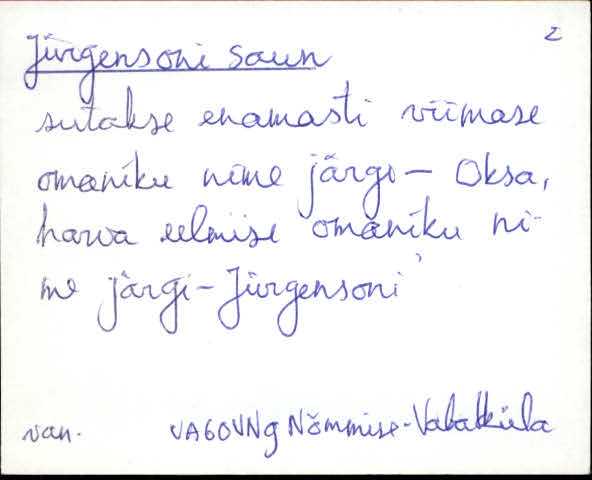 2
Jürgensoni saun
sutakse enamasti viimase
omaniku nime järgi - Oksa,
harva eelmise omaniku ni-
me järgi - Jürgensoni
van. VAGOVNg Nõmmise-Vabatküla